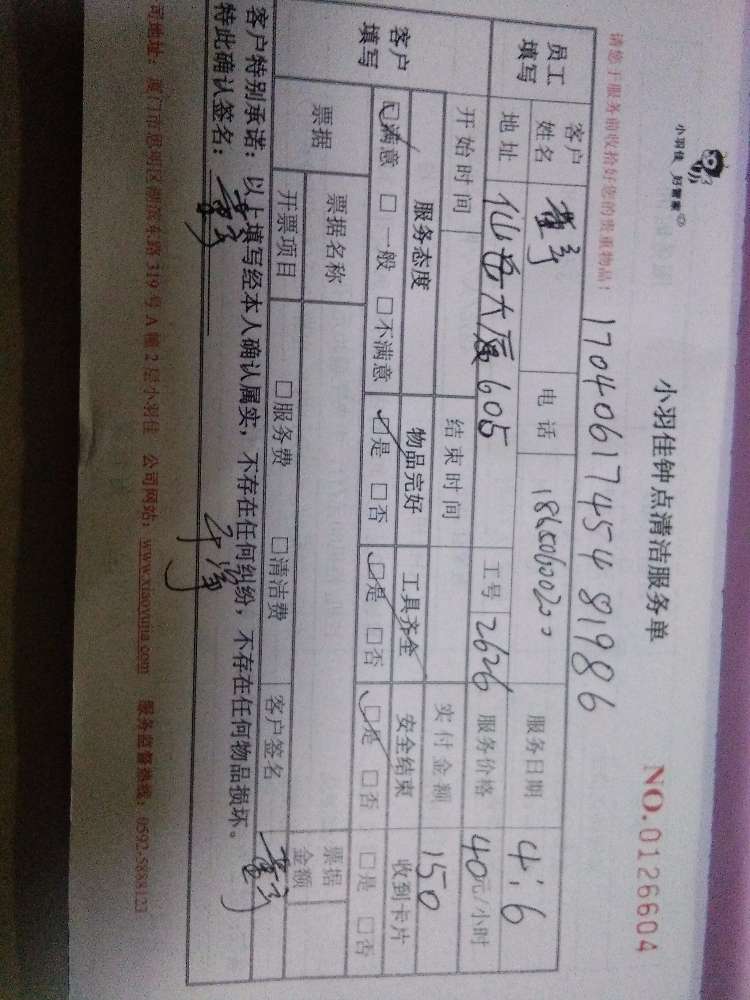 小羽佳 好管家
小羽佳钟点清洁服务单
NO.0126604
请您于服务前收拾好您的贵重物品！
17040617454 81986
员工填写
客户姓名
电话
服务日期 4.6
地址 仙岳大厦605
工号 2626
服务价格 40元/小时
开始时间
结束时间
实付金额 150
客户填写
服务态度 物品完好 工具齐全 安全结束 收到卡片
☑满意 □一般 □不满意 ☑是 □否 ☑是 □否 ☑是 □否 □是 □否
票据
票据名称
票据金额
开票项目 □服务费 □清洁费 客户签名
客户特别承诺：以上填写经本人确认属实，不存在任何纠纷，不存在任何物品损坏。
特此确认签名：
司地址：厦门市思明区湖滨东路319号A幢2层小羽佳 公司网站：www.xiaoyujia.com 服务监督热线：0592-5888123